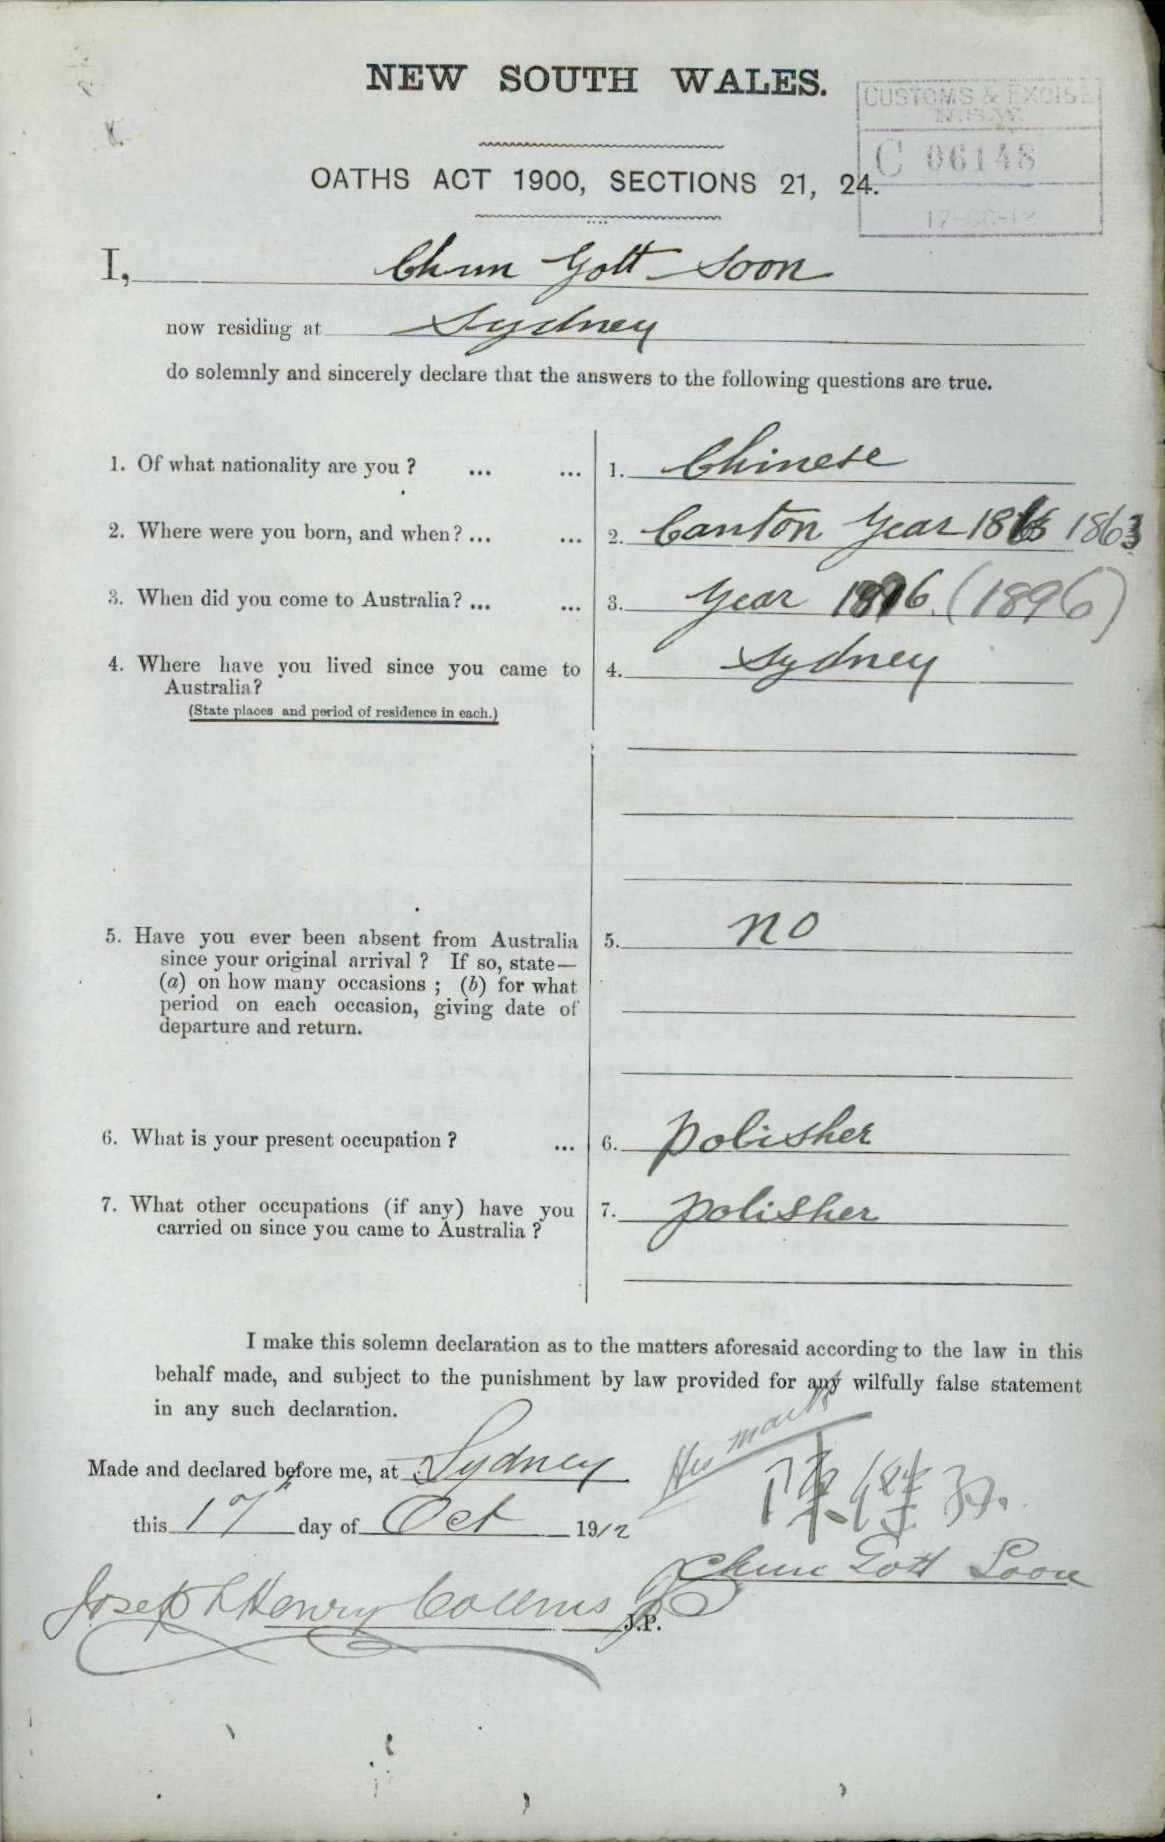 NEW SOUTH WALES.
CUSTOMS & EXCISE
N.S.W.
C 06148
OATHS ACT 1900, SECTIONS 21, 24.
I, Chun Gott Soon
now residing at Sydney
do solemnly and sincerely declare that the answers to the following questions are true.
1. Of what nationality are you ? ... ... 1. Chinese
2. Where were you born, and when? ... ... 2. Canton Year 1863
3. When did you come to Australia? ... ... 3. Year 1896 (1896)
4. Where have you lived since you came to 4. Sydney
Australia?
(State places and period of residence in each.)
5. Have you ever been absent from Australia 5. no
since your original arrival ? If so, state—
(a) on how many occasions ; (b) for what
period on each occasion, giving date of
departure and return.
6. What is your present occupation ? ... 6. polisher
7. What other occupations (if any) have you 7. polisher
carried on since you came to Australia ?
I make this solemn declaration as to the matters aforesaid according to the law in this
behalf made, and subject to the punishment by law provided for any wilfully false statement
in any such declaration.
His mark
Made and declared before me, at Sydney
陳
this 17th day of Oct 1912
Chun Gott Soon
Joseph Henry Collins J.P.